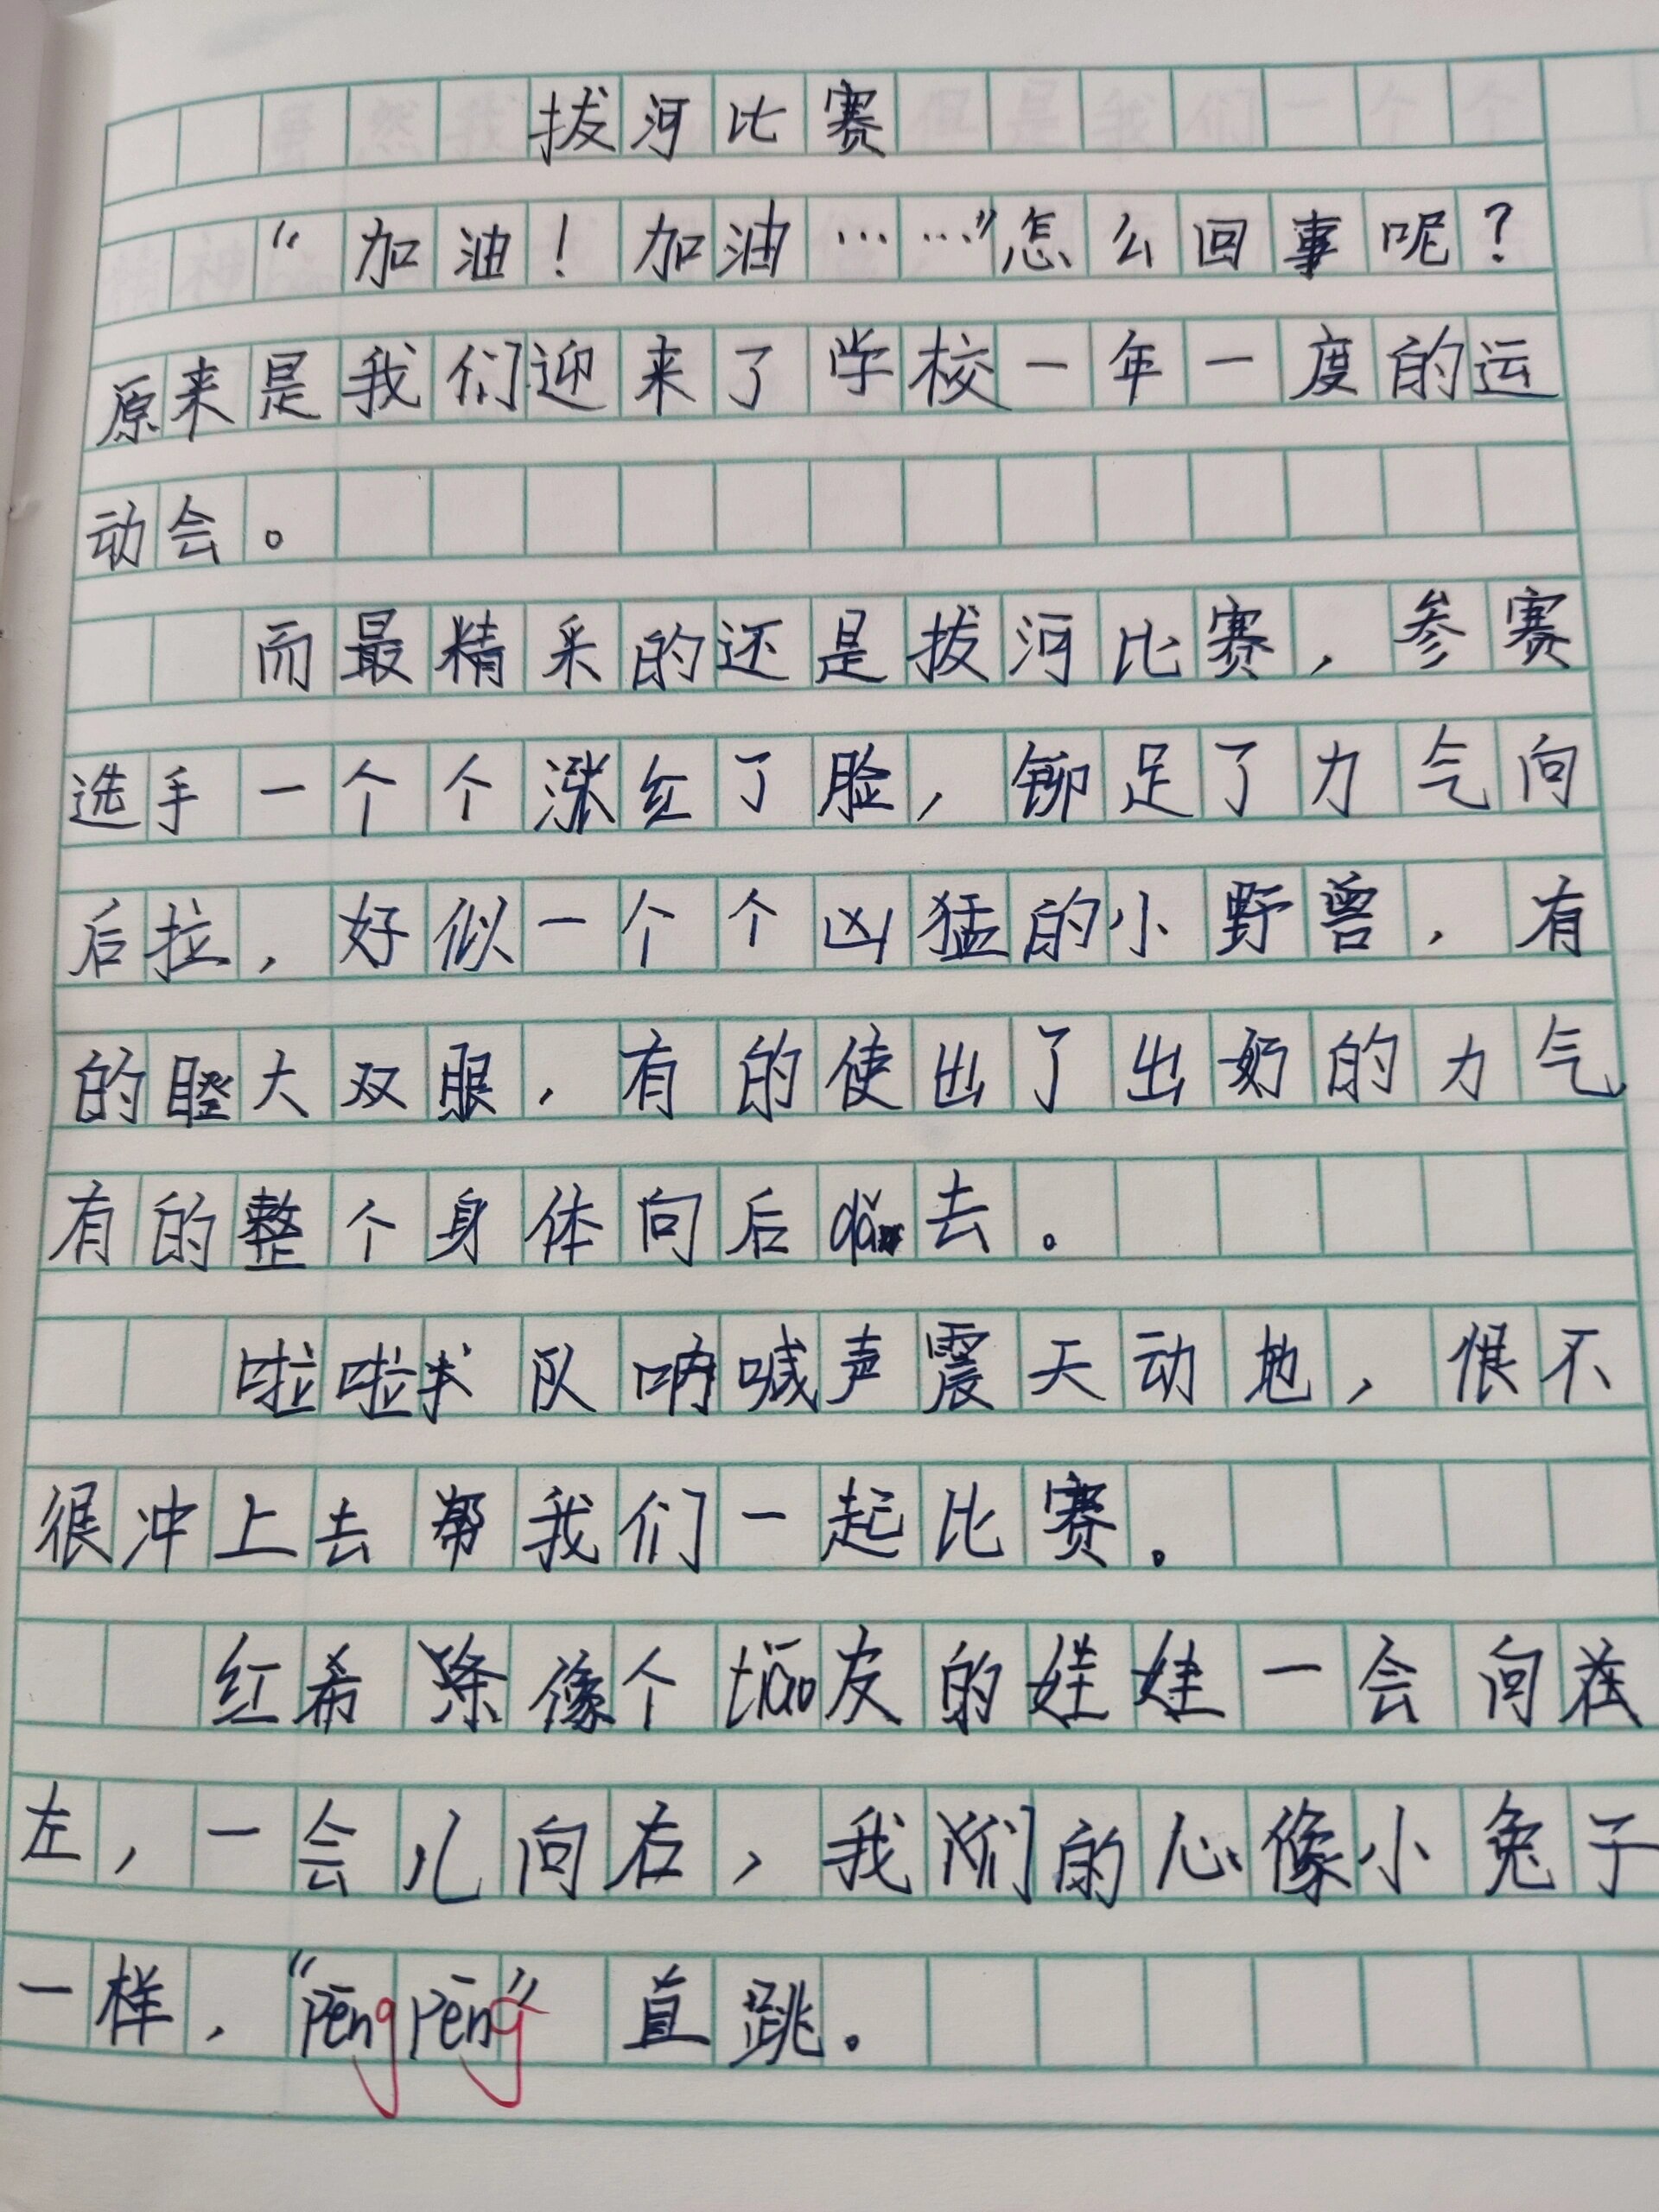 拔河比赛
“加油！加油……”怎么回事呢？
原来是我们迎来了学校一年一度的运
动会。
而最精采的还是拔河比赛，参赛
选手一个个涨红了脸，铆足了力气向
后拉，好似一个个凶猛的小野兽，有
的瞪大双眼，有的使出了出奶的力气
有的整个身体向后 去。
啦啦 队呐喊声震天动地，恨不
很冲上去帮我们一起比赛。
红希 像个tiāo皮的娃娃一会向在
左，一会儿向右，我们的心像小兔子
一样，“Pēng Pēng”直跳。